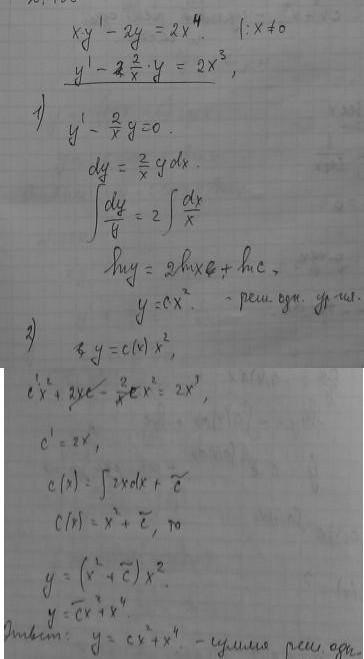 x·y' - 2y = 2x⁴. |: x ≠ 0
y' - 2/x · y = 2x³,
1)
y' - 2/x y = 0.
dy = 2/x y dx.
∫ dy/y = 2 ∫ dx/x
ln y = 2 ln x + ln c,
y = cx². - реш. одн. ур-ия.
2)
y = c(x) x²,
c'x² + 2xc - 2/x c x² = 2x³,
c' = 2x,
c(x) = ∫ 2x dx + c̃
c(x) = x² + c̃, то
y = (x² + c̃) x².
y = c̃x² + x⁴.
Ответ: y = cx² + x⁴ - сумма реш. одн.